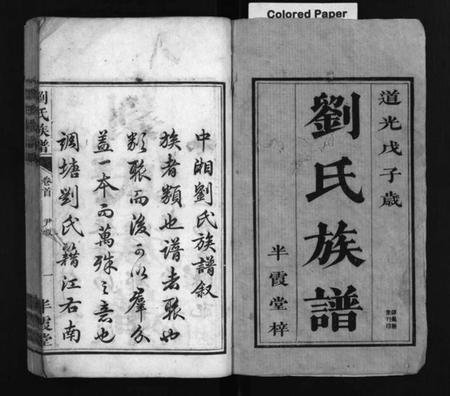 Colored Paper
道光戊子歲
劉氏族譜
半霞堂梓
中湘劉氏族譜叙
族者類也譜者聯也
類聯而後可以羣分
蓋一本而萬殊之意也
調塘劉氏籍江右南
劉氏族譜
卷首
一
半霞堂